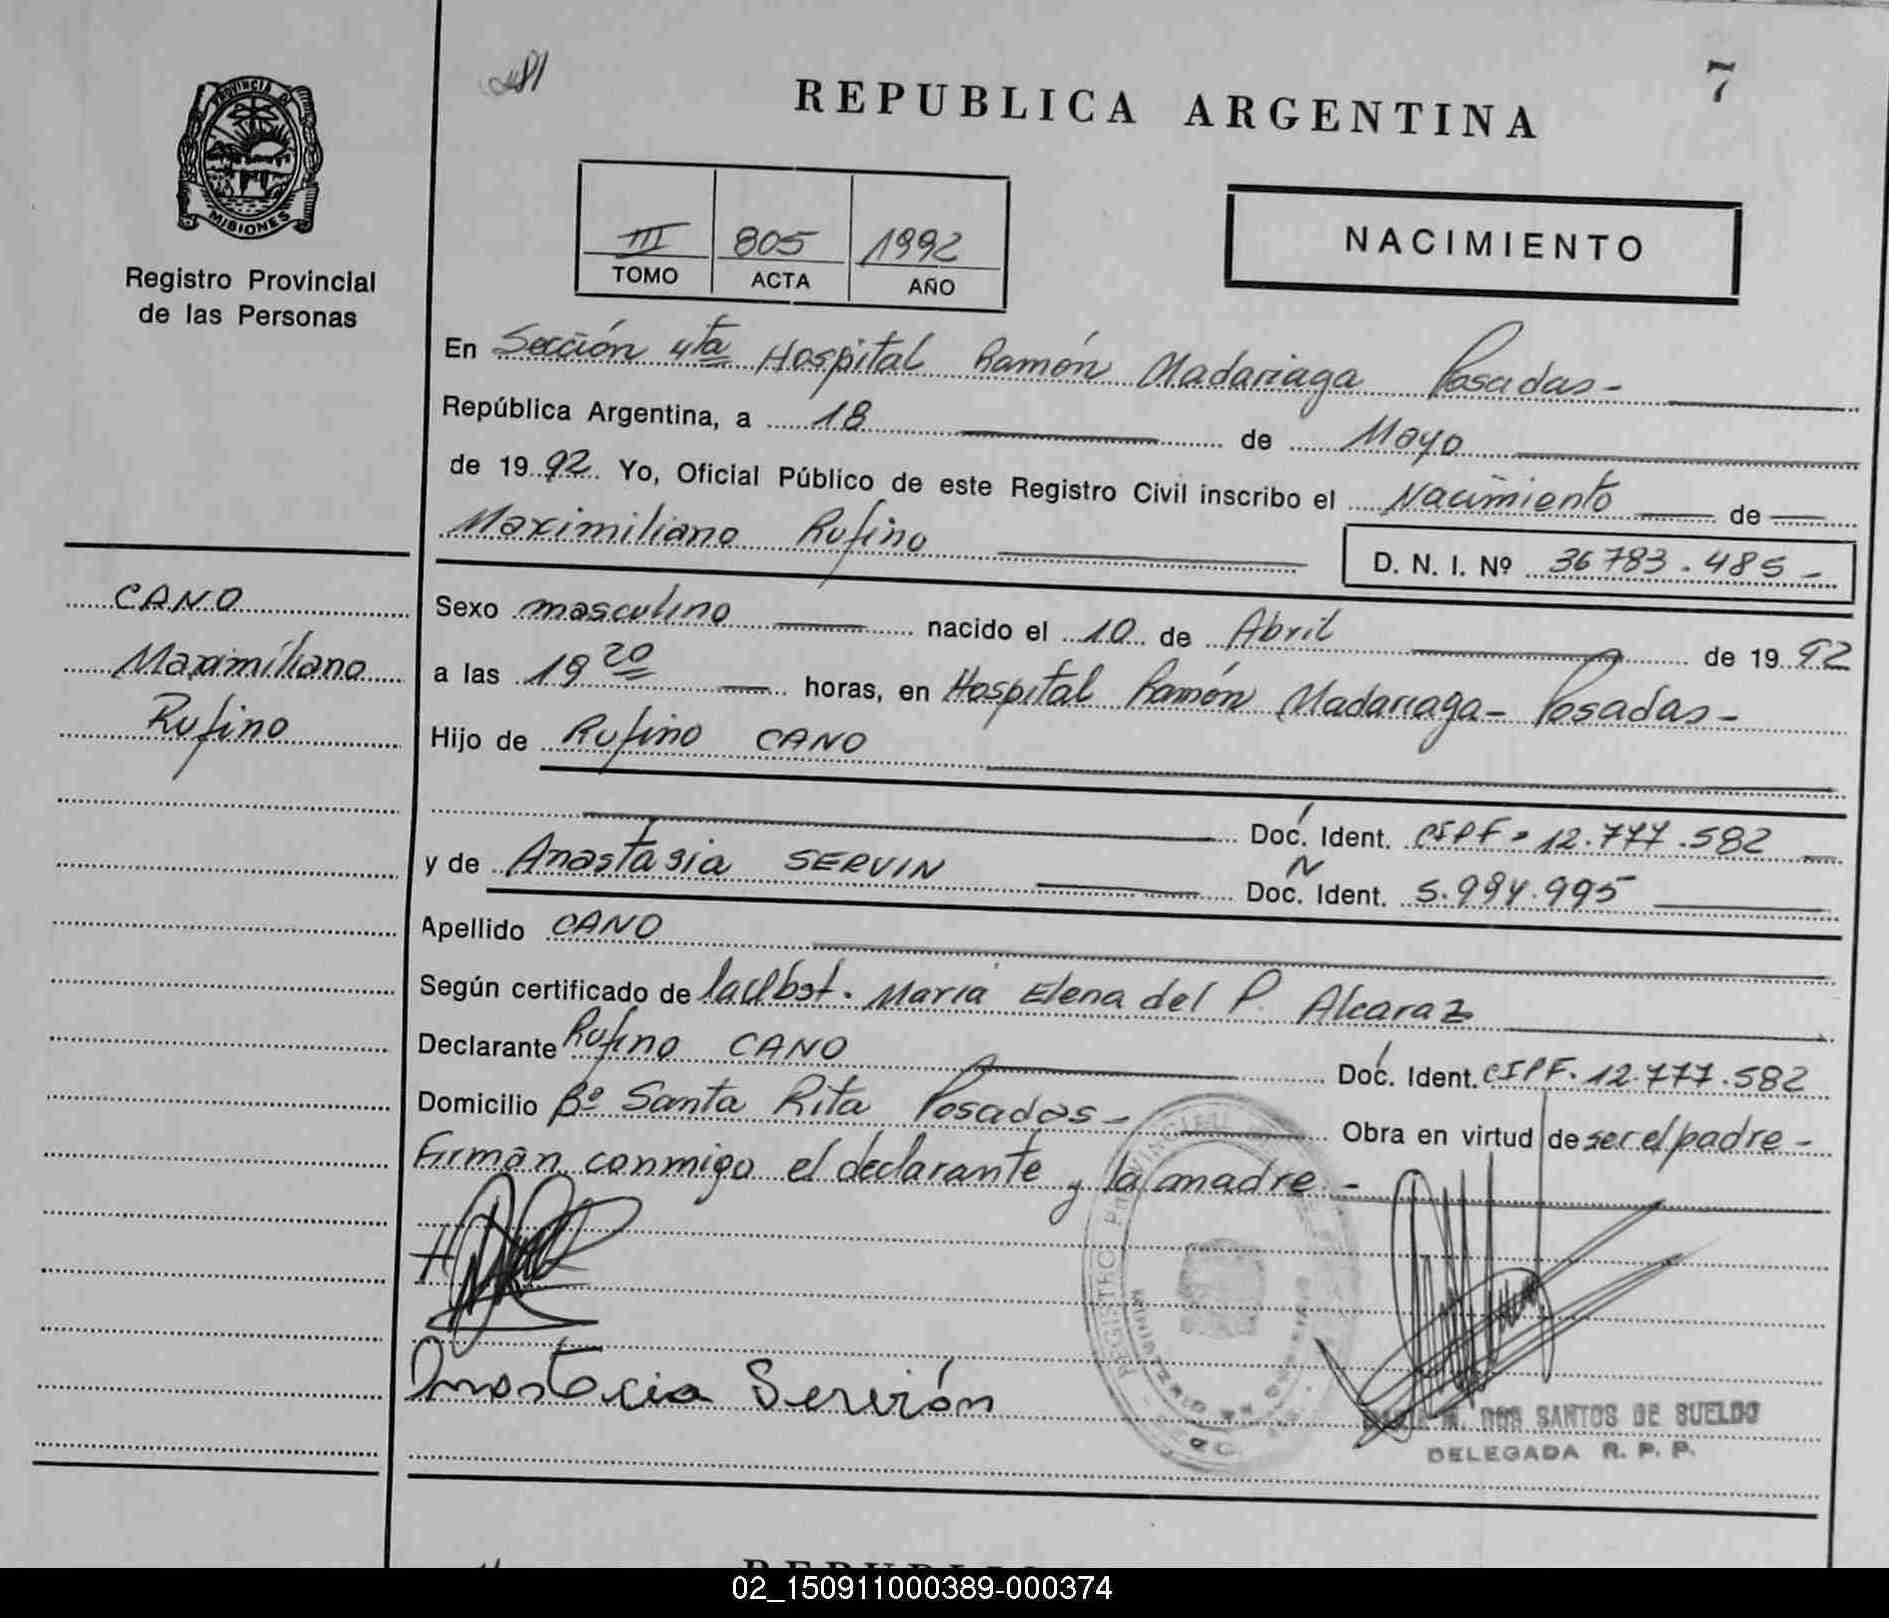 7
REPUBLICA ARGENTINA
PROVINCIA DE
MISIONES
Registro Provincial
de las Personas
III 805 1992
TOMO ACTA AÑO
NACIMIENTO
En Sección 4ta Hospital Ramón Madariaga Posadas-
República Argentina, a 18 de Mayo
de 1992 Yo, Oficial Público de este Registro Civil inscribo el Nacimiento de
Maximiliano Rufino
D. N. I. Nº 36783.485-
CANO
Maximiliano
Rufino
Sexo masculino nacido el 10 de Abril de 1992
a las 19 20 horas, en Hospital Ramón Madariaga- Posadas-
Hijo de Rufino CANO
Doc. Ident. CIPF- 12.777.582
y de Anastasia SERVIN Doc. Ident. 5.994.995
Apellido CANO
Según certificado de la Obst. Maria Elena del P. Alcaraz
Declarante Rufino CANO Doc. Ident. CIPF. 12.777.582
Domicilio Bº Santa Rita Posadas- Obra en virtud de ser el padre-
Firman conmigo el declarante y la madre.-
REGISTRO PROVINCIAL
MINISTERIO DE GOBIERNO
Anastacia Servión
DOS SANTOS DE SUELDO
DELEGADA R. P. P.
02_150911000389-000374